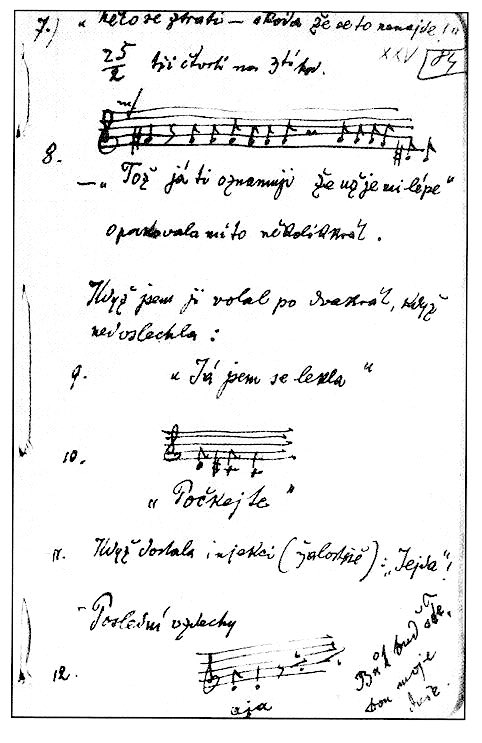 7.) „něco se ztratí – škoda že se to nenajde!"
XXV 84
25/2 tři čtvrti na 3tí hod.
8.
– „Tož já ti oznamuji že už je mi lépe"
opakovala mi to několikkrát.
Když jsem ji volal po dvakrát, když
nedoslechla:
9. „Já jsem se lekla"
10.
„Počkejte"
11. Když dostala injekci (žalostně): „Jejda"!
Poslední vzdechy
12.
aja
Bůh buď s
tou moje
duše.